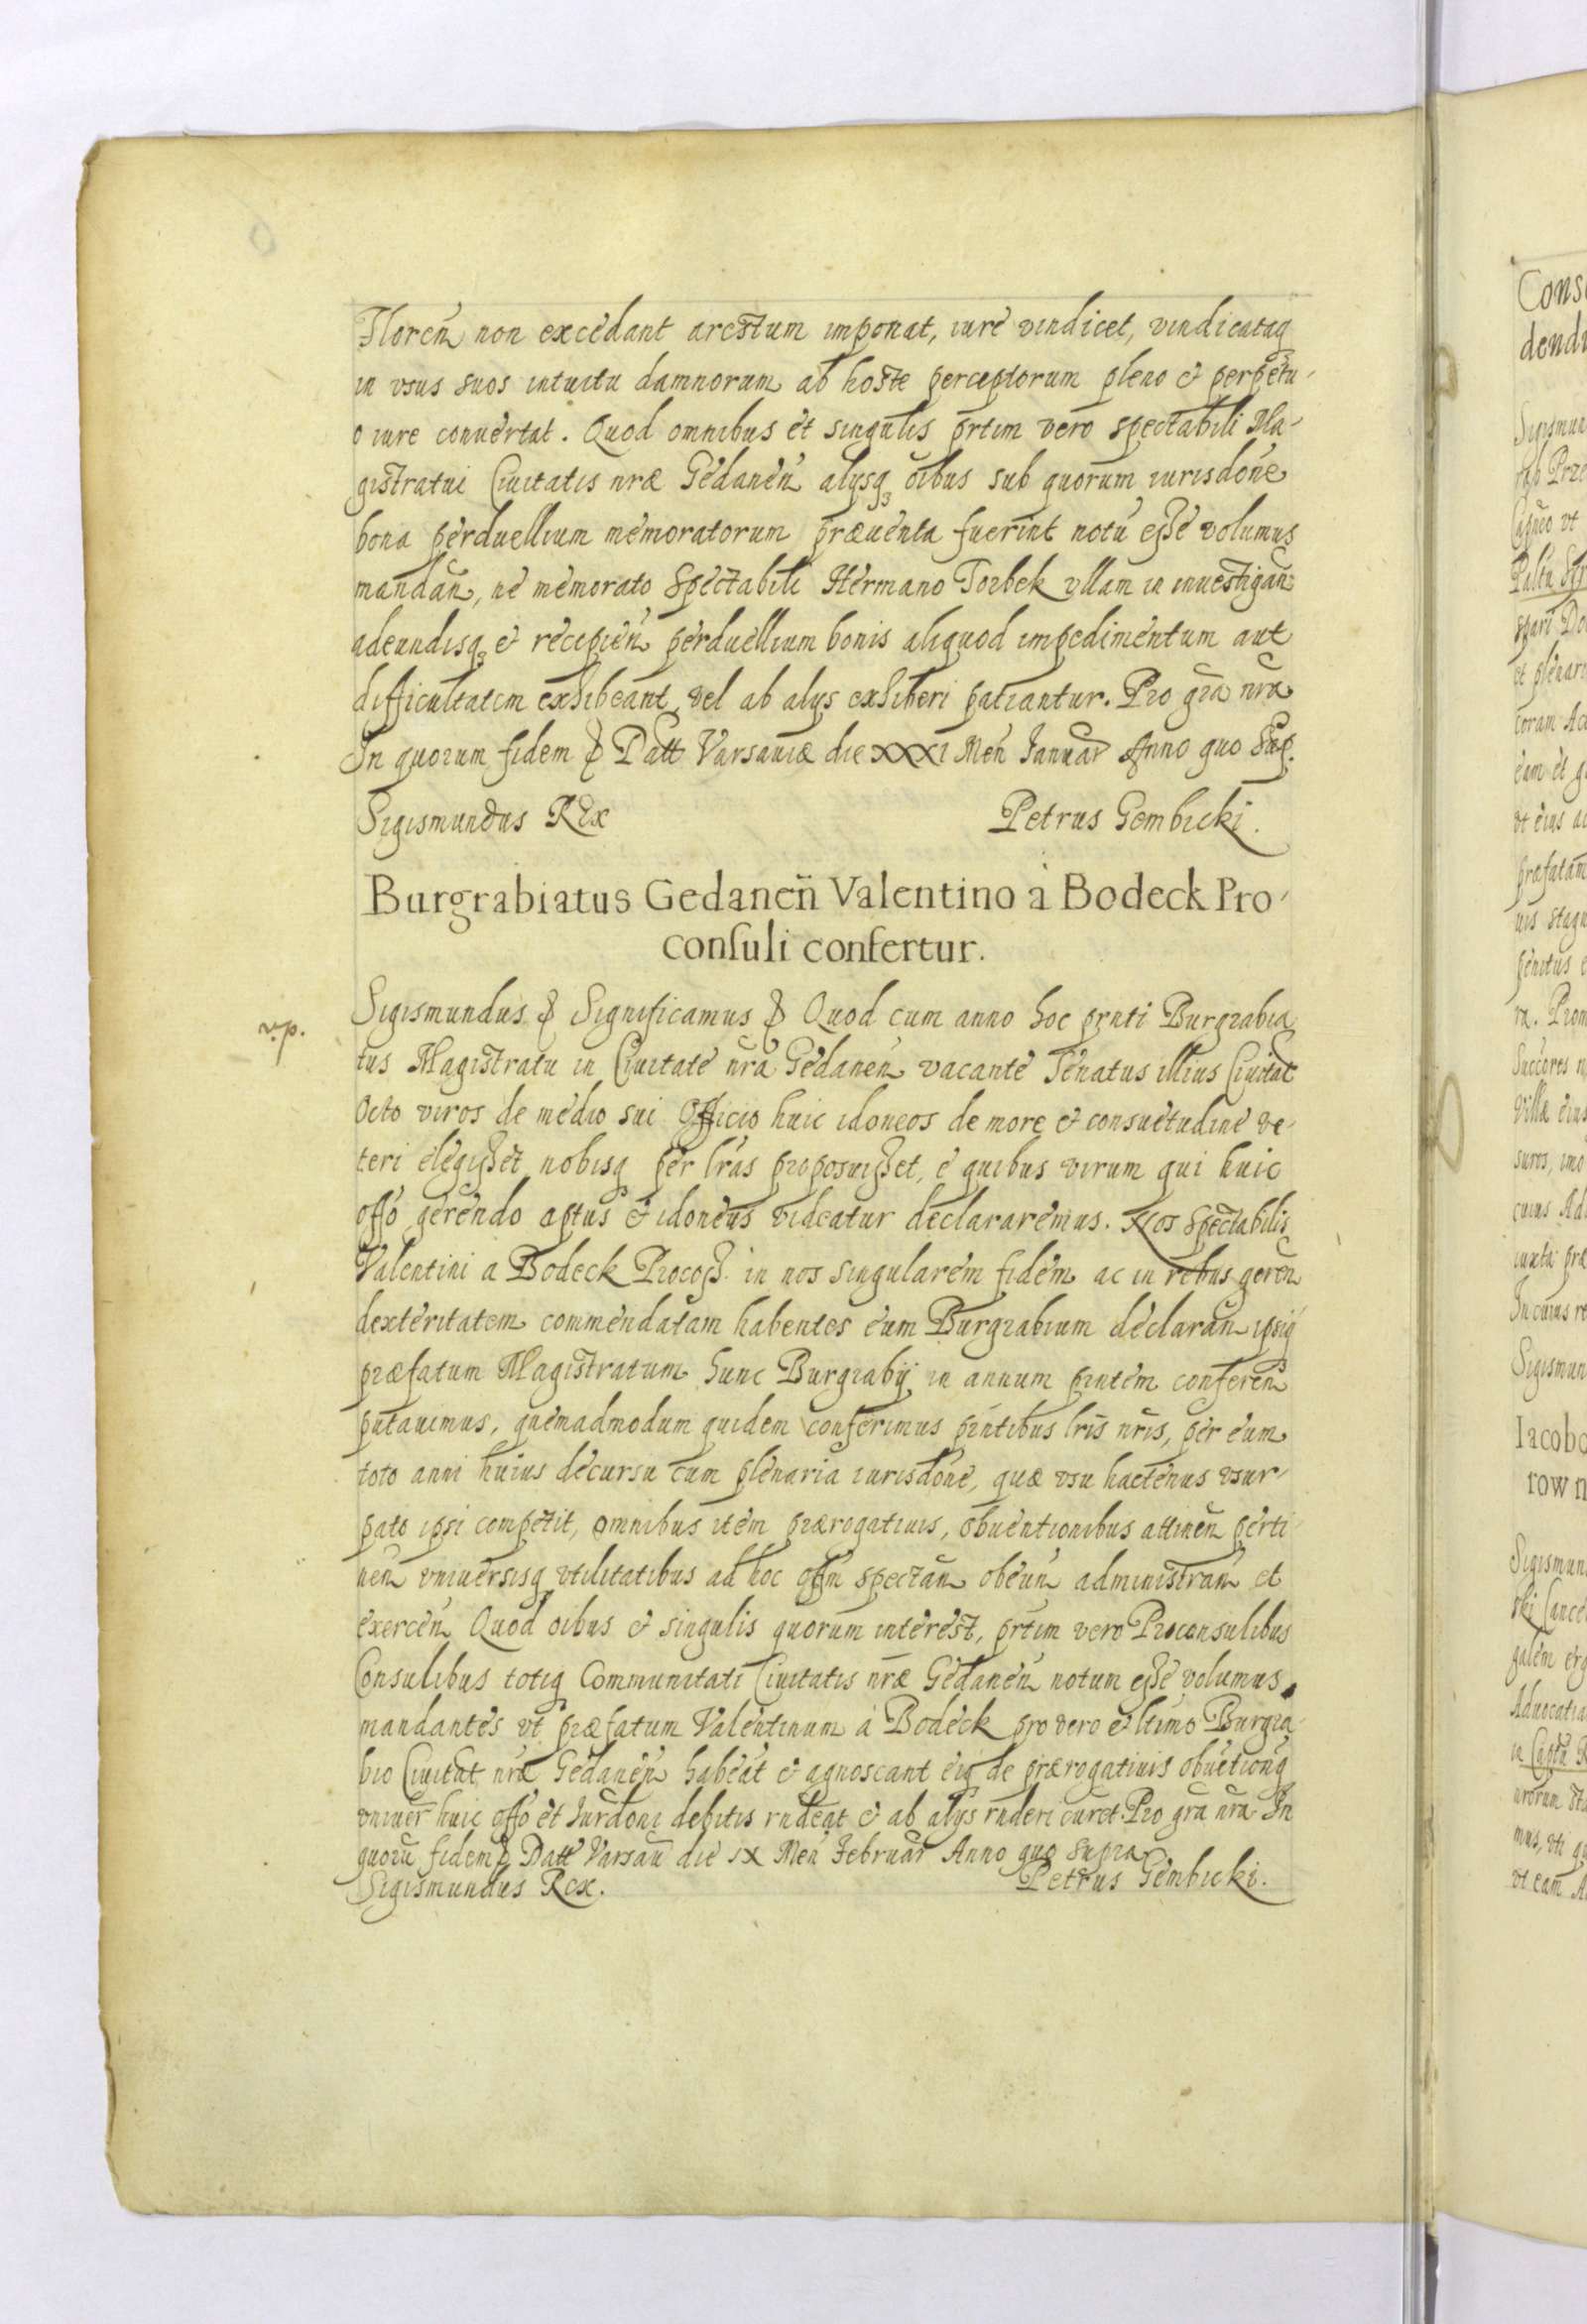 Floren̄ non excedant arestum imponat, iure vindicet, vindicataq
in vsus suos intuitu damnorum ab hoste perceptorum pleno et perpetu-
o iure conuertat. Quod omnibus et singulis prtim vero spectabili Ma-
gistratui Ciuitatis nrae Gedanen̄ alijsq oibus sub quorum iurisdone
bona perduellium memoratorum praeuenta fuerint notū esse volumus
mandan̄, ne memorato Spectabili Hermano Torbek vllam in inuestigan̄
adeundisq et recipien̄ perduellium bonis aliquod impedimentum aut
difficultatem exhibeant, vel ab alijs exhiberi patiantur. Pro gra nra
In quorum fidem & Datt Varsauiae die XXXI Men̄ Januar Anno quo Sup.
Sigismundus REx Petrus Gembicki.
Burgrabiatus Gedanen̄ Valentino à Bodeck Pro-
consuli confertur.
v.p.
Sigismundus & Significamus & Quod cum anno hoc prnti Burgrabia
tus Magistratu in Ciuitate nra Gedanen̄ vacante Senatus illius Ciuitat
Octo viros de medio sui Officio huic idoneos de more et consuetudine ve-
teri elegisset nobisq per lras proposuisset, e quibus virum qui huic
offo gerendo aptus et idoneus videatur declararemus. Nos Spectabilis
Valentini a Bodeck Procoss. in nos singularem fidem ac in rebus geren̄
dexteritatem commendatam habentes eum Burgrabium declaran̄ ipsiq
praefatum Magistratum hunc Burgrabij in annum prntem conferen̄
putauimus, quemadmodum quidem conferimus prntibus lris nris, per eum
toto anni huius decursu cum plenaria iurisdone, quae vsu hactenus vsur-
pato ipsi competit, omnibus item praerogatiuis, obuentionibus attinen̄ perti-
nen̄ vniuersisq vtilitatibus ad hoc offm spectan̄ obeun̄ administran̄ et
exercen̄ Quod oibus et singulis quorum interest, prtim vero Proconsulibus
Consulibus totiq Communitati Ciuitatis nrae Gedanen̄ notum esse volumus
mandantes vt praefatum Valentinum à Bodeck pro vero et ltimo Burgra-
bio Ciuitat nrae Gedanen̄ habeāt et agnoscant eiq de praerogatiuis obuētionq
vniuer huic offo et Jurdoni debitis rndeāt et ab alijs rnderi curet. Pro gra nra In
quorū fidem & Datt Varsau die IX Men̄ Februar Anno quo supra
Sigismundus Rex. Petrus Gembicki.